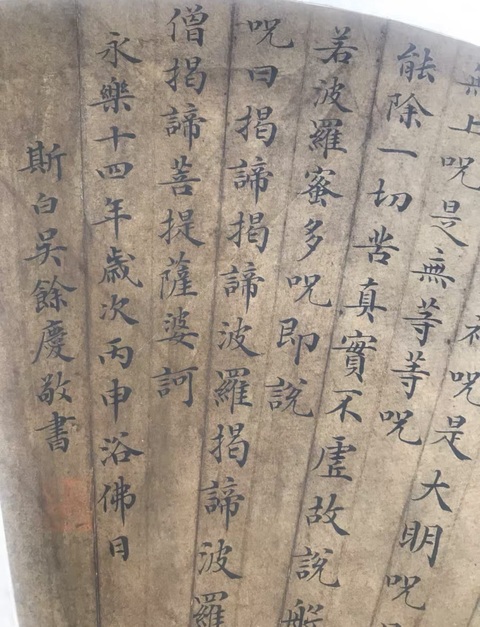 咒是大明咒
上咒是無等等咒
能除一切苦真實不虛故說般
若波羅蜜多咒即說
咒曰揭諦揭諦波羅揭諦波羅
僧揭諦菩提薩婆訶
永樂十四年歲次丙申浴佛日
斯白吳餘慶敬書